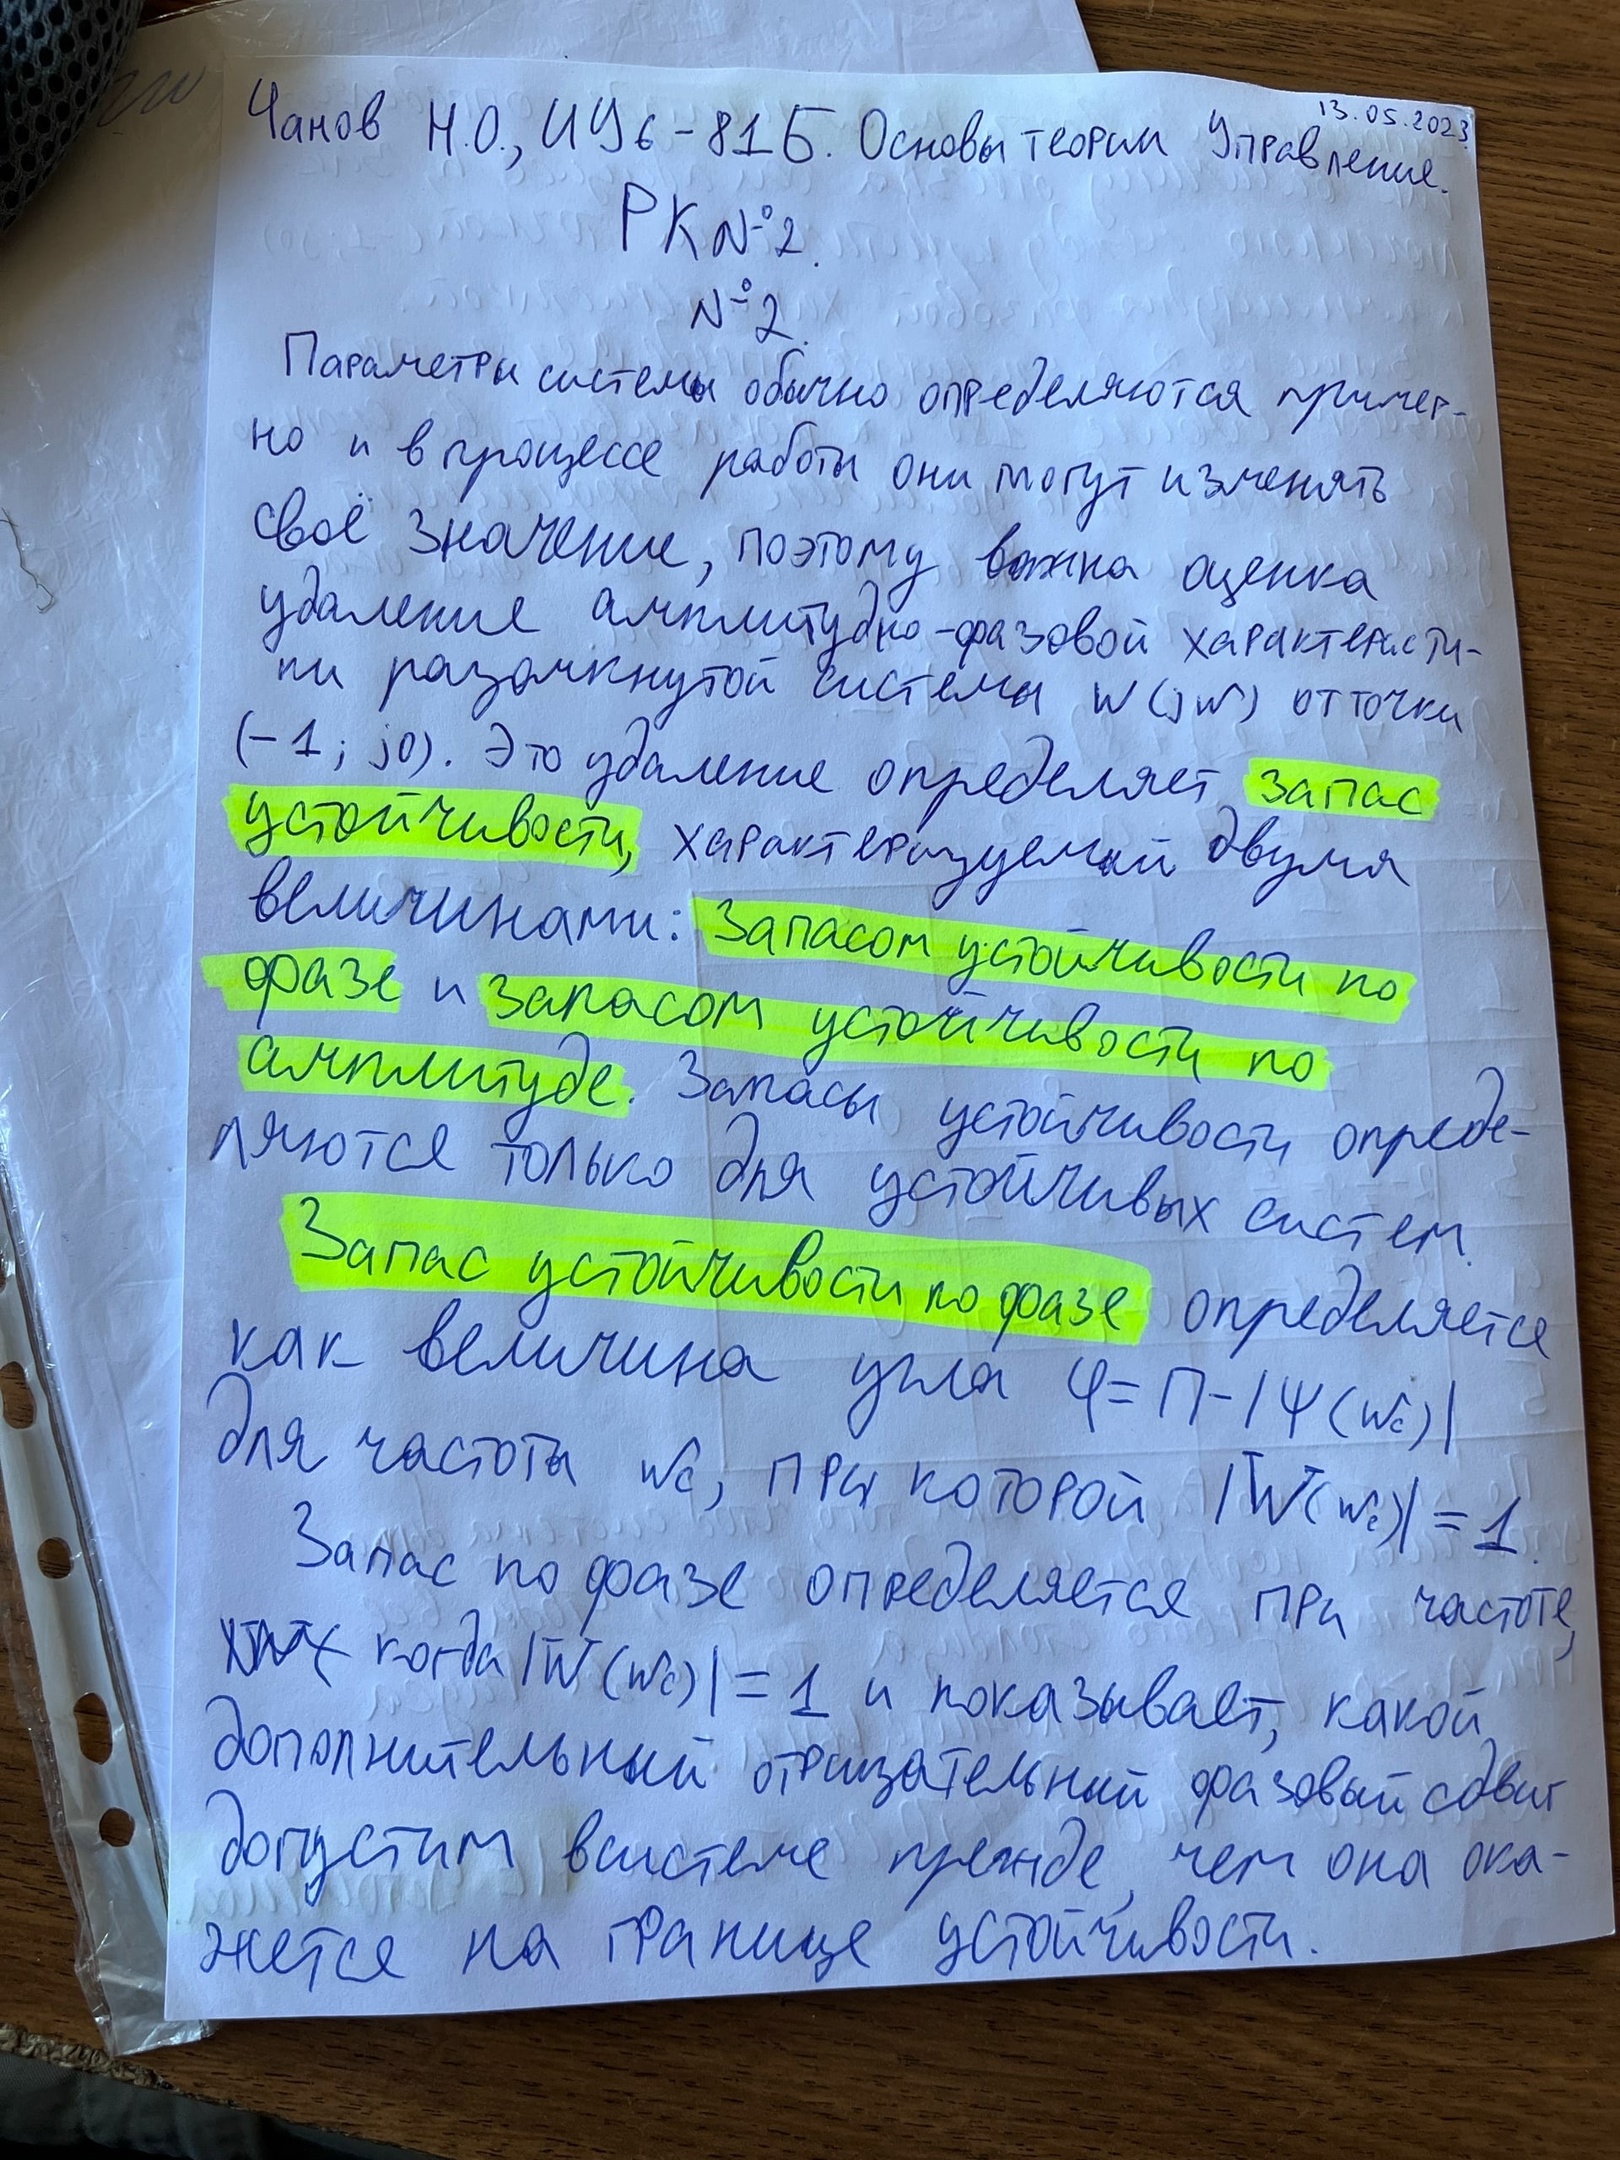 13.05.2023
Чанов Н.О., ИУ6-81Б. Основы теории Управление.
РК №2.
№2.
Параметры системы обычно определяются пример-
но и в процессе работы они могут изменять
своё значение, поэтому важна оценка
удаление амплитудно-фазовой характеристи-
ки разомкнутой системы W(jw) от точки
(-1; j0). Это удаление определяет запас
устойчивости, характеризуемый двумя
величинами: запасом устойчивости по
фазе и запасом устойчивости по
амплитуде. Запасы устойчивости опреде-
ляются только для устойчивых систем.
Запас устойчивости по фазе определяется
как величина угла φ=П-|Ψ(wc)|
для частоты wc, при которой |W(wc)|=1.
Запас по фазе определяется при частоте,
когда |W(wc)|=1 и показывает, какой
дополнительный отрицательный фазовый сдвиг
допустим в системе прежде, чем она ока-
жется на границе устойчивости.